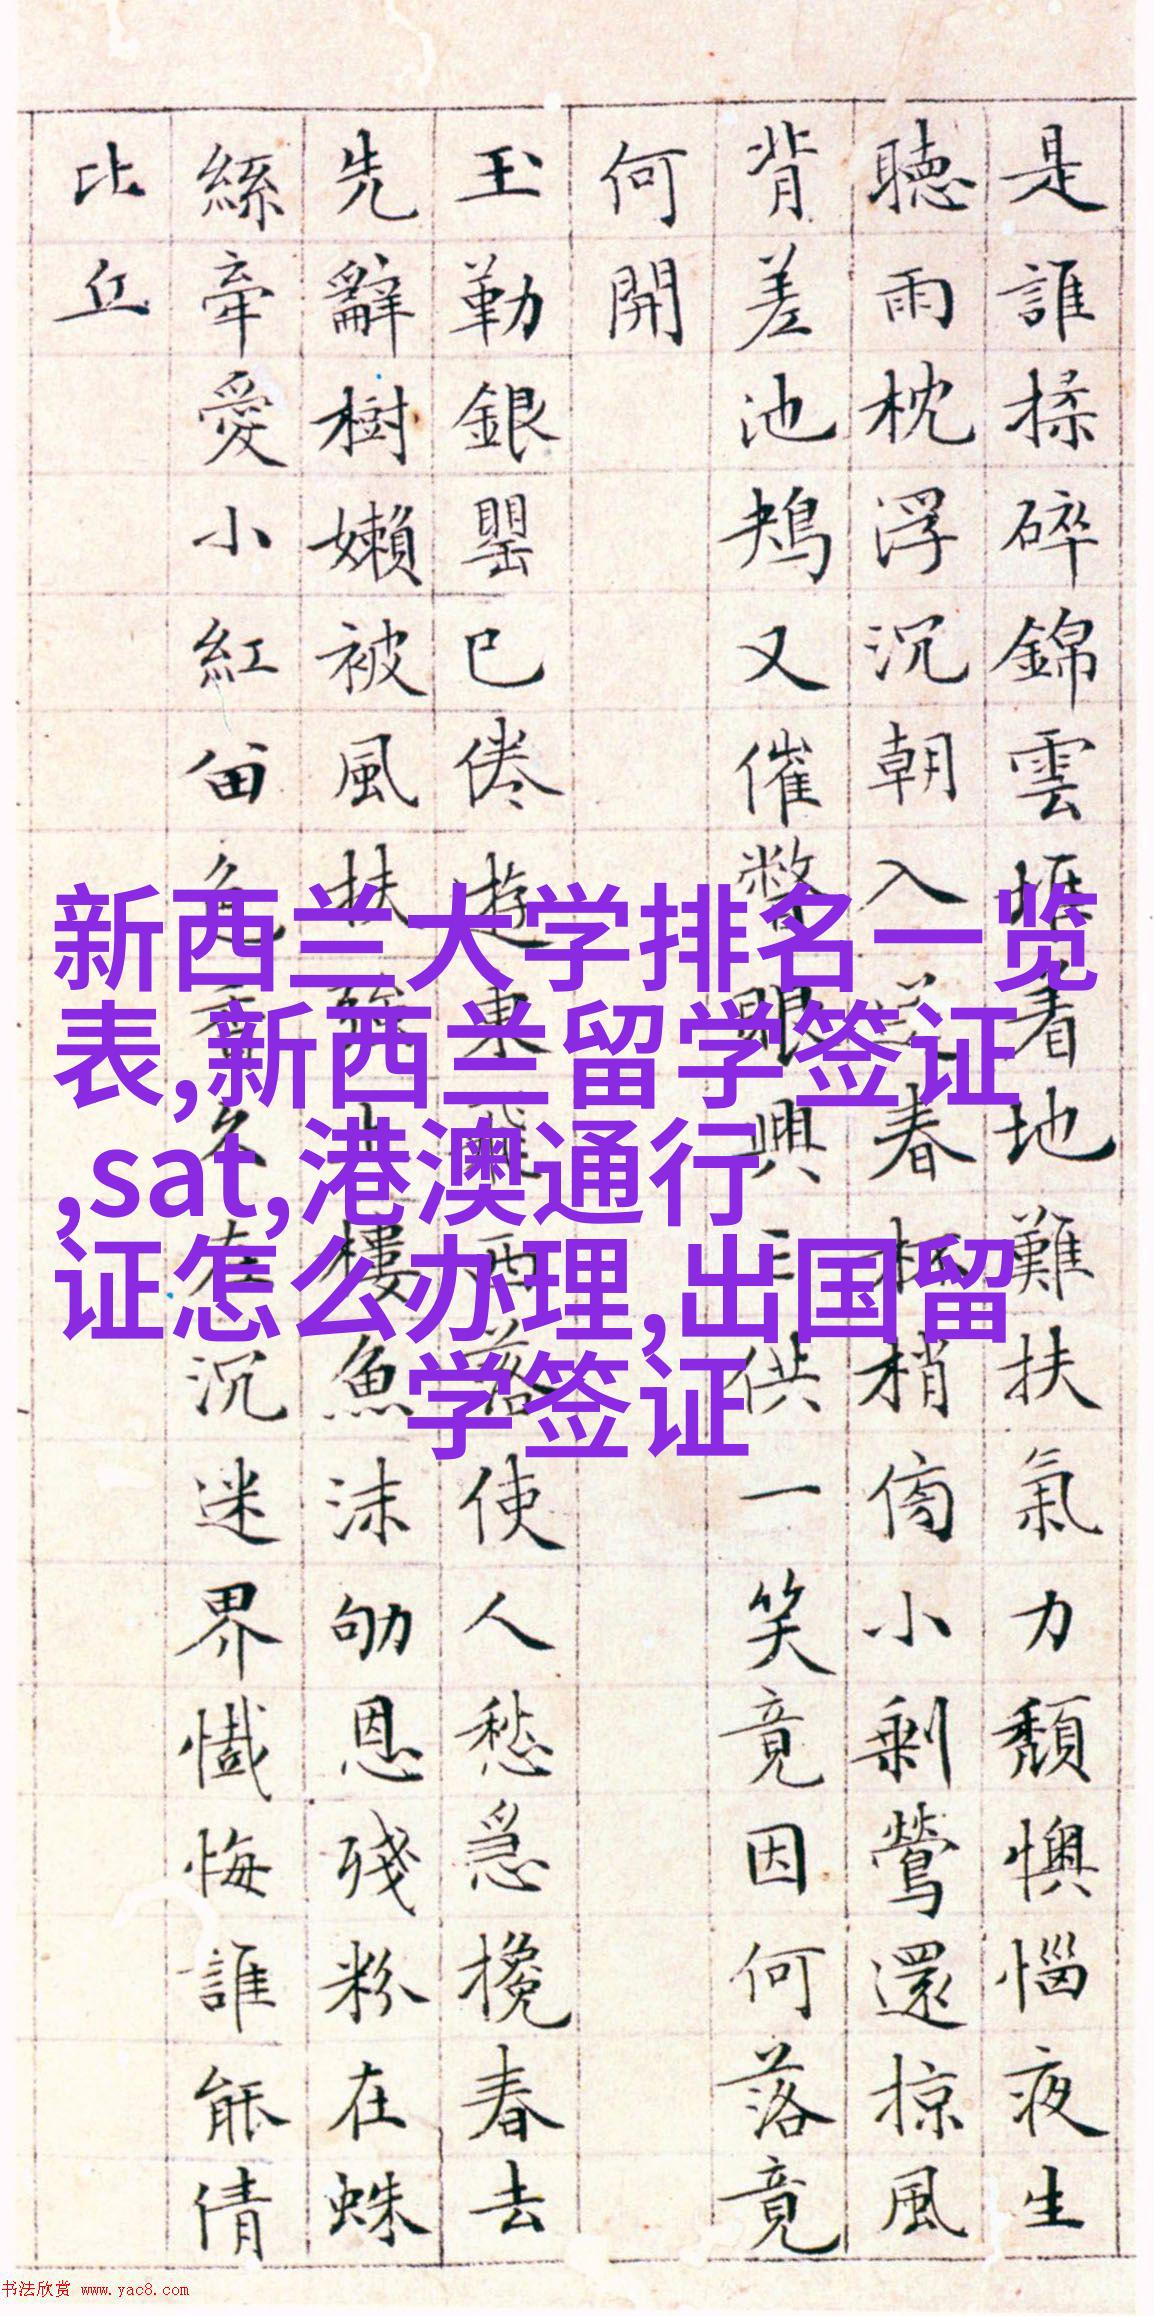 是誰揉碎錦雲着地難扶氣力頹懊惱夜生
聽雨枕浮沉朝入春梢傍小剩鶯還掠風
背差池鴂又催眼興供一笑竟因何落竟
何開
玉勒銀罌已倦遊東飛西落使人愁急攙春去
先辭樹嬾被風扶樓魚沫劬恩殘粉在蛛
絲牽愛小紅留色香久在沉迷界懺悔誰能倩
比丘
新西兰大学排名一览
表,新西兰留学签证
,sat,港澳通行
证怎么办理,出国留
学签证
书法欣赏 www.yac8.com